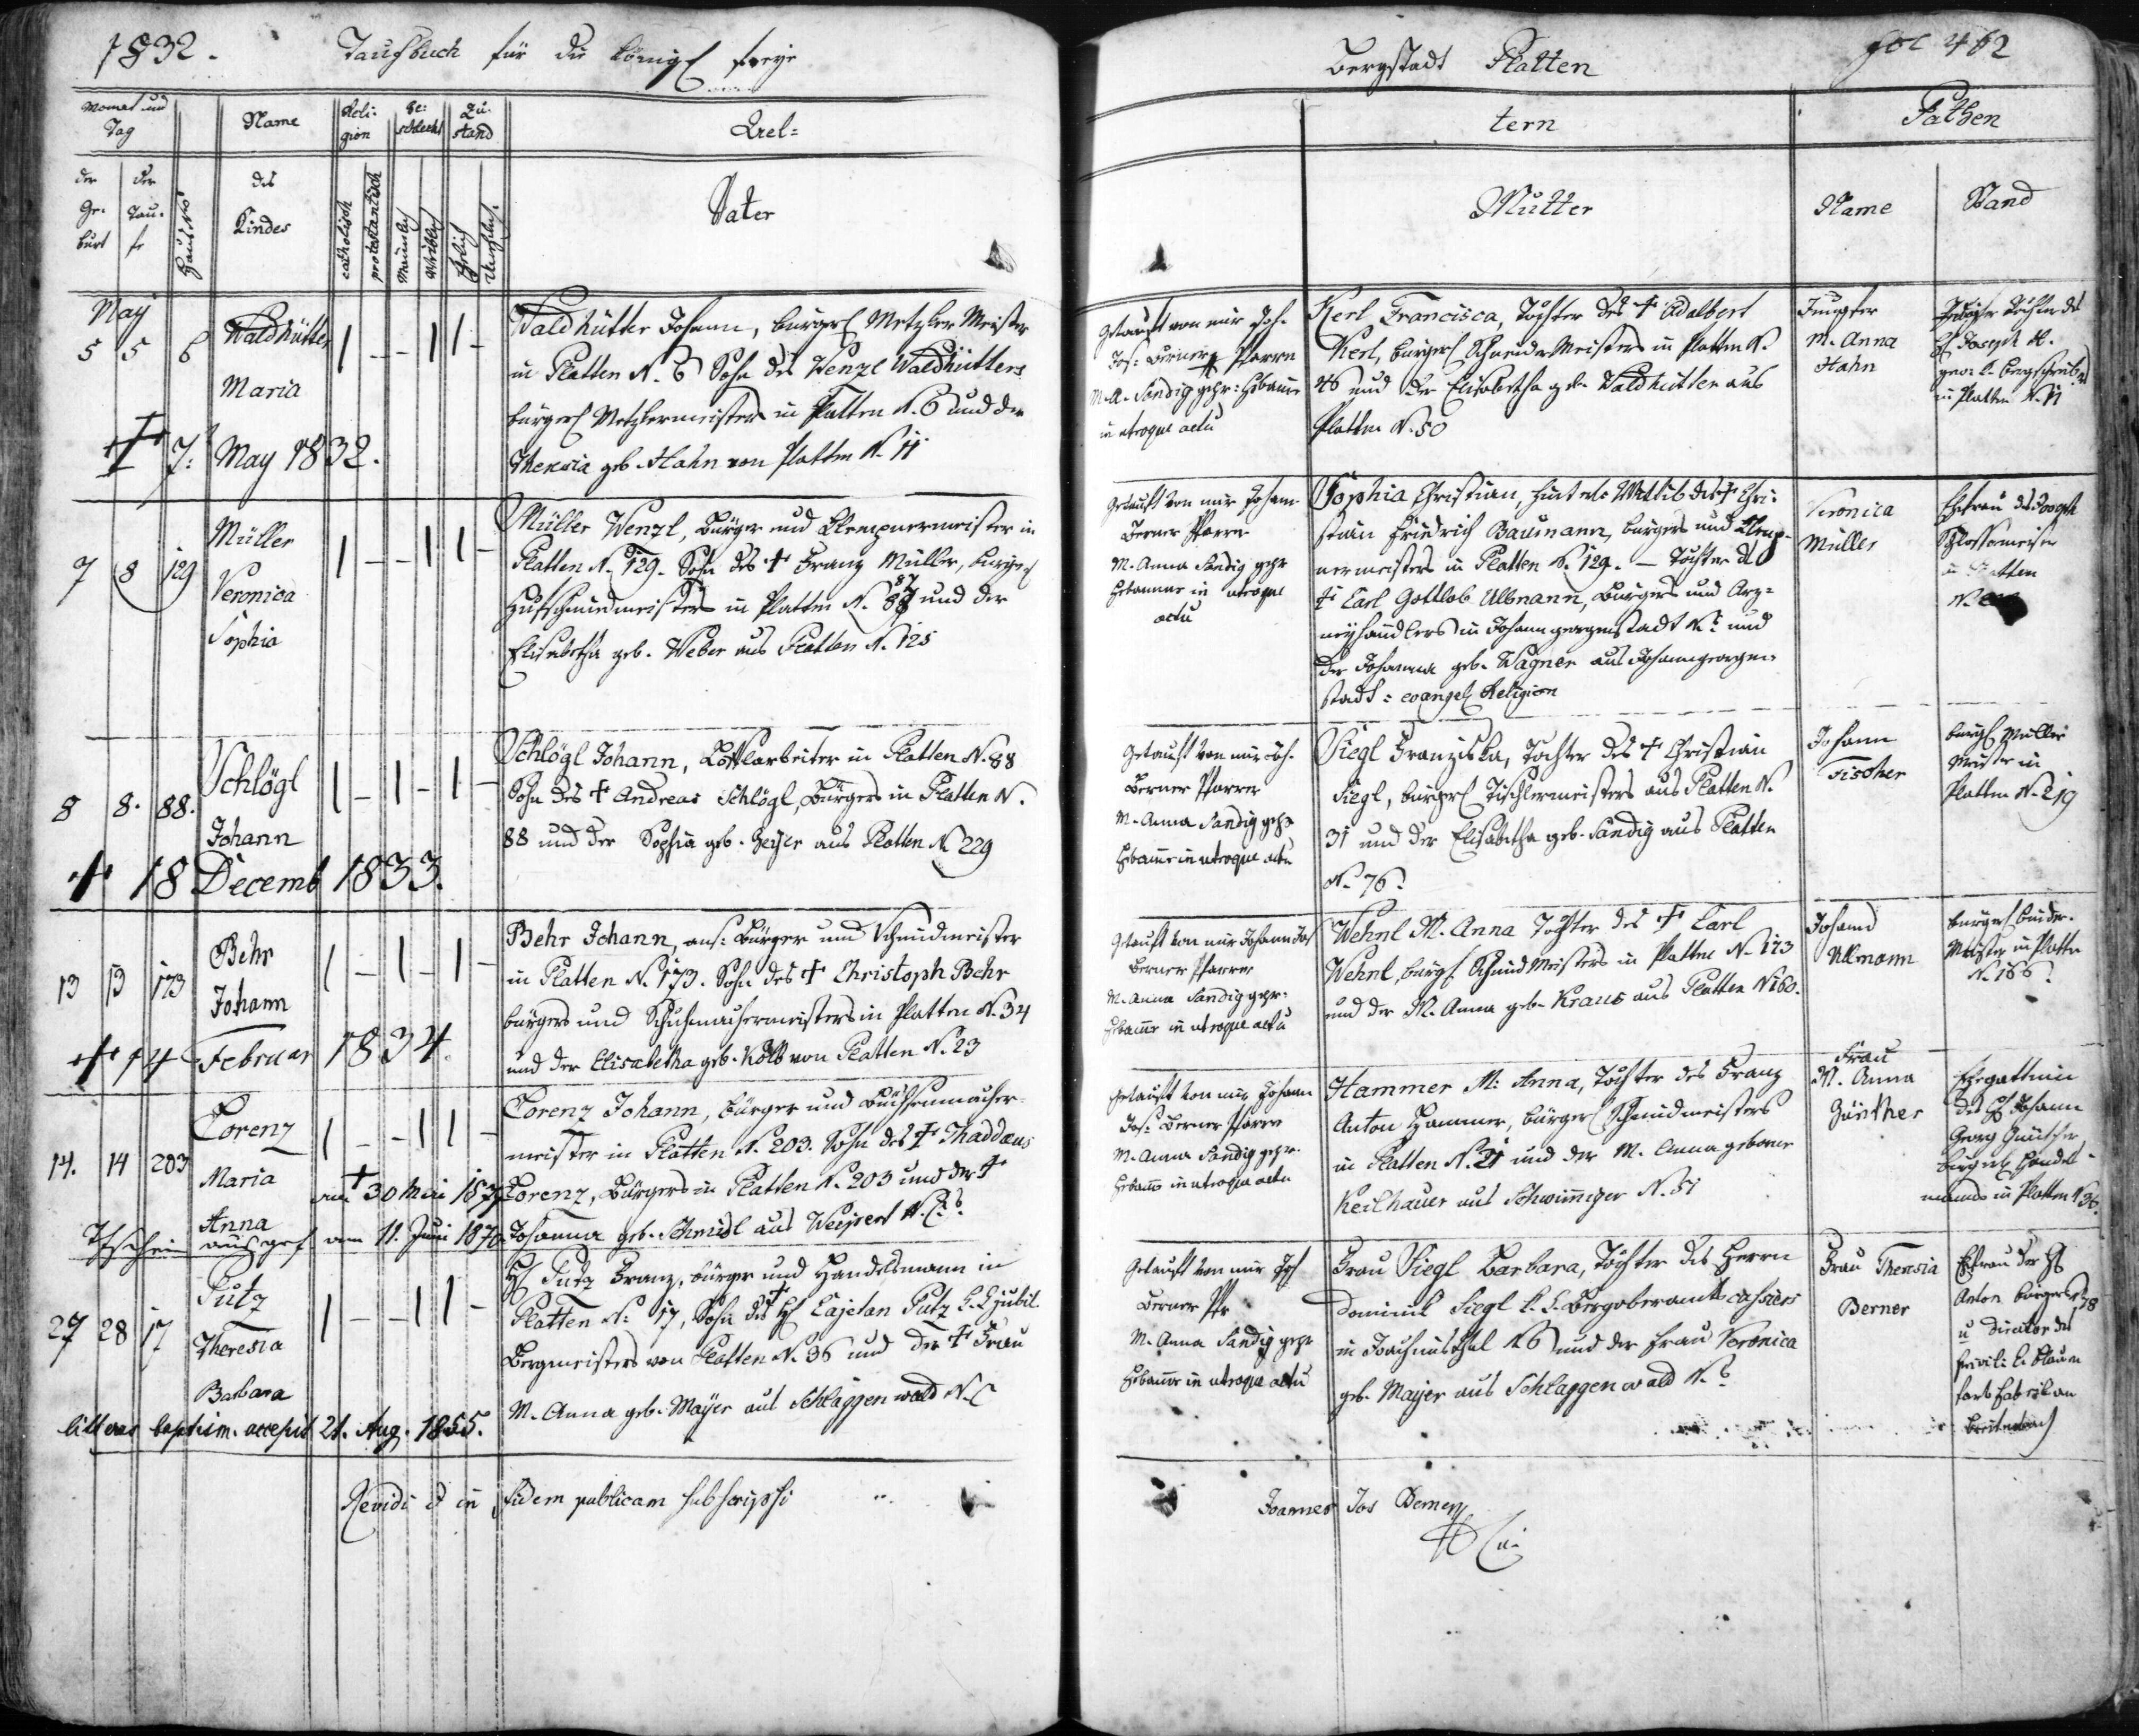 1832. Taufbuch für die königl freye
Bergstadt Platten
fol 462
Monat und Tag
Name
Reli-
gion
Ge-
schlecht
Zu-
stand
Ael=
tern
Pathen
der Ge-
burt
der Tau-
fe
Haus No
des Kindes
catholisch
protestantisch
Männlich
Weiblich
Ehelich
Unehelich
Vater
Mutter
Name
Stand
May
5 5 6
Waldhütter
Maria
† 7: May 1832.
Waldhütter Johann, bürgerl Metzker Meister
in Platten N. 6 Sohn des Wenzl Waldhütters
bürgerl Metzkermeisters in Platten N. 6 und der
Theresia geb. Hahn von Platten N. 11
Getauft von mir Joh.
Jos: Berner Pfarrer
M. A. Sandig gepr: Hebame
in utroque actu
Kerl Francisca, Tochter des † Adalbert
Kerl, bürgerl Schneider Meisters in Platten N.
46 und der Elisabetha geb. Waldhütter aus
Platten N. 50
Jungfer
M. Anna
Hahn
Tochter des
H Joseph H.
gew. k. Bergschreiber
in Platten N. 11
7 8 129
Müller
Veronica
Sophia
Müller Wenzl, Bürger und Klempnermeister in
Platten N. 129. Sohn des † Franz Müller, bürgerl
Hufschmiedmeisters in Platten N. 87 und der
Elisabetha geb. Weber aus Platten N. 125
Getauft von mir Johann
Berner Pfarrer
M. Anna Sandig gepr
Hebamme in utroque
actu
Sophia Christian, Wittib des † Chri-
stian Friedrich Baumann, bürgers und Klemp-
nermeisters in Platten N. 129. — Tochter des
† Carl Gottlob Ullmann, Bürgers und Arz=
neyhändlers in Johanngeorgenstadt N: und
der Johanna geb. Wagner aus Johanngeorgen-
stadt: evangel Religion
Veronica
Müller
Ehefrau des Joseph
Schlossermeister
in Platten
N.
8 8. 88.
Schlögl
Johann
† 18 Decemb 1833.
Schlögl Johann, Löfflarbeiter in Platten N. 88
Sohn des † Andreas Schlögl, Bürgers in Platten N.
88 und der Sophia geb. Heyer aus Platten N. 229
Getauft von mir Joh.
Berner Pfarrer
M. Anna Sandig gepr
Hebame in utroque actu
Siegl Franziska, Tochter des † Christian
Siegl, bürgerl Tischlermeisters aus Platten N.
31 und der Elisabetha geb. Sandig aus Platten
N. 76.
Johann
Fischer
bürgl Müller
Meister in
Platten N. 219
13 13 173
Behr
Johann
† 14 Februar 1834.
Behr Johann, ans: Bürger und Schmidmeister
in Platten N. 173. Sohn des † Christoph Behr
bürgers und Schuhmachermeisters in Platten N. 34
und der Elisabetha geb. Kolb von Platten N. 23
Getauft von mir Johann Jos
Berner Pfarrer
M. Anna Sandig gepr:
Hebame in utroque actu
Wehnl M. Anna Tochter des † Carl
Wehnl, bürgl. Schmid Meisters in Platten N. 173
und der M. Anna geb. Kraus aus Platten N 60.
Johann
Ullmann
bürgerl Binder-
Meister in Platten
N. 166.
14. 14 203
Lorenz
Maria
Anna
am † 30 Mai 1879
Tfschein ausgef. am 11. Juni 1870
Lorenz Johann, bürger und Büchsenmacher-
meister in Platten N. 203. Sohn des † Thaddæus
Lorenz, Bürgers in Platten N. 203 und der †
Johanna geb. Schmidl aus Weipert N.
Getauft von mir Johann
Jos: Berner Pfarrer
M. Anna Sandig gepr.
Hebame in utroque actu
Hammer M: Anna, Tochter des Franz
Anton Hammer, bürgerl Schmidmeisters
in Platten N. 21 und der M. Anna geborne
Keilhauer aus Schwimiger N. 51
Frau
M. Anna
Günther
Ehegattin
des H Johann
Georg Günther,
bürgerl Handel-
manns in Platten N 36.
27 28 17
Putz
Theresia
Barbara
litteras baptism. accepit 21. Aug. 1855.
H Putz Franz, bürger und Handelsmann in
Platten N: 17, Sohn des † H Cajetan Putz k. k jubil.
Bergmeisters von Platten N. 36 und der † Frau
M. Anna geb. Mayer aus Schlaggenwald N.
Getauft von mir Joh
Berner Pfr
M. Anna Sandig gepr
Hebamme in utroque actu
Frau Siegl Barbara, Tochter des Herrn
Dominik Siegl k. k. Bergoberamts cassiers
in Joachimsthal N 6 und der Frau Veronica
geb. Mayer aus Schlaggenwald N.
Frau Theresia
Berner
Ehefrau des H
Anton bürgers N 78
u Director der
privili. k. blauen
farb fabrik an
Breitenbach
Revidi et in fidem publicam subscripsi
Joannes Jos Berner